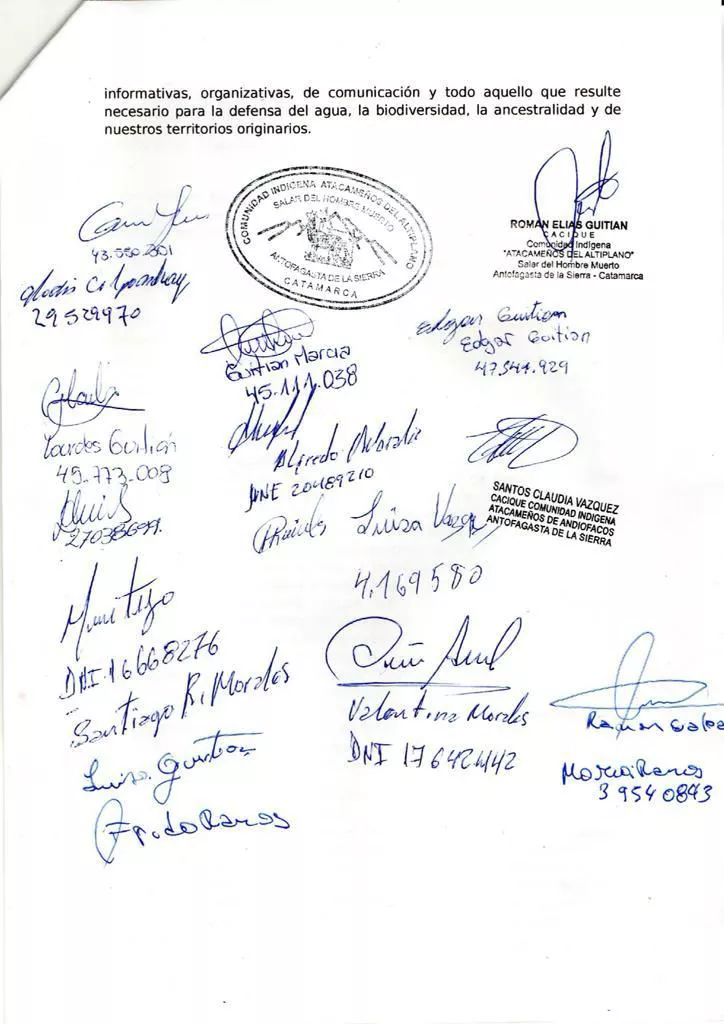 informativas, organizativas, de comunicación y todo aquello que resulte
necesario para la defensa del agua, la biodiversidad, la ancestralidad y de
nuestros territorios originarios.
COMUNIDAD INDIGENA ATACAMEÑOS DEL ALTIPLANO
SALAR DEL HOMBRE MUERTO
ANTOFAGASTA DE LA SIERRA
CATAMARCA
ROMAN ELIAS GUITIAN
CACIQUE
Comunidad Indígena
"ATACAMEÑOS DEL ALTIPLANO"
Salar del Hombre Muerto
Antofagasta de la Sierra - Catamarca
29529970
Guitian Marcia
45.111.038
Edgar Guitian
Edgar Guitian
47.544.929
Lourdes Guitián
45.773.009
Alfredo Morales
DNE 20489210
SANTOS CLAUDIA VAZQUEZ
CACIQUE COMUNIDAD INDIGENA
ATACAMEÑOS DE ANDIOFACOS
ANTOFAGASTA DE LA SIERRA
Luisa
4.169580
DNI.16668276
Santiago R. Morales
Valentina Morales
DNI 17642442
Luisa Guitian
Ramos
3 9540843